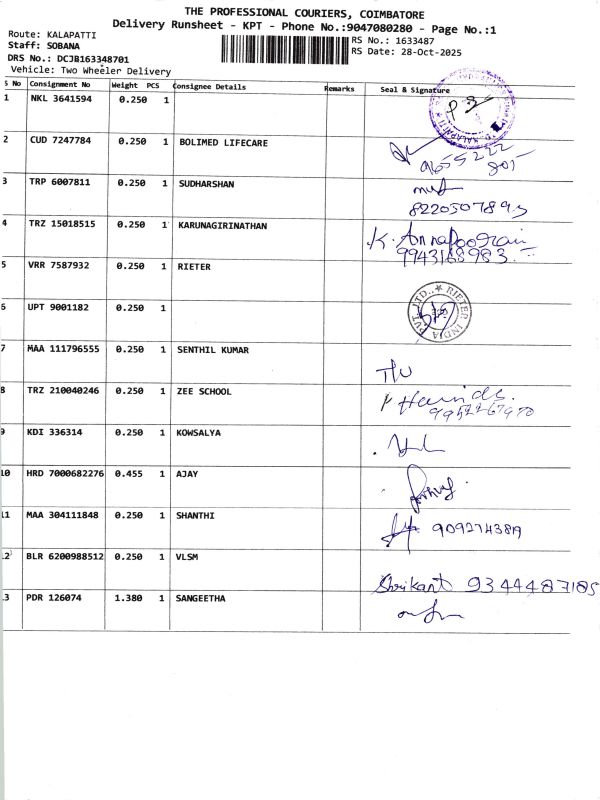 THE PROFESSIONAL COURIERS, COIMBATORE
Delivery Runsheet - KPT - Phone No.:9047080280 - Page No.:1
Route: KALAPATTI
Staff: SOBANA
DRS No.: DCJB163348701
Vehicle: Two Wheeler Delivery
RS No.: 1633487
RS Date: 28-Oct-2025
S No Consignment No Weight PCS Consignee Details Remarks Seal & Signature
1 NKL 3641594 0.250 1
2 CUD 7247784 0.250 1 BOLIMED LIFECARE 9655222 805
3 TRP 6007811 0.250 1 SUDHARSHAN
4 TRZ 15018515 0.250 1 KARUNAGIRINATHAN K. Annapoorani
9943168983
5 VRR 7587932 0.250 1 RIETER
RIETER INDIA PVT. LTD.
6 UPT 9001182 0.250 1
7 MAA 111796555 0.250 1 SENTHIL KUMAR
8 TRZ 210040246 0.250 1 ZEE SCHOOL
9 KDI 336314 0.250 1 KOWSALYA
10 HRD 7000682276 0.455 1 AJAY
11 MAA 304111848 0.250 1 SHANTHI 9092743819
12 BLR 6200988512 0.250 1 VLSM Shrikant 9344487185
13 PDR 126074 1.380 1 SANGEETHA